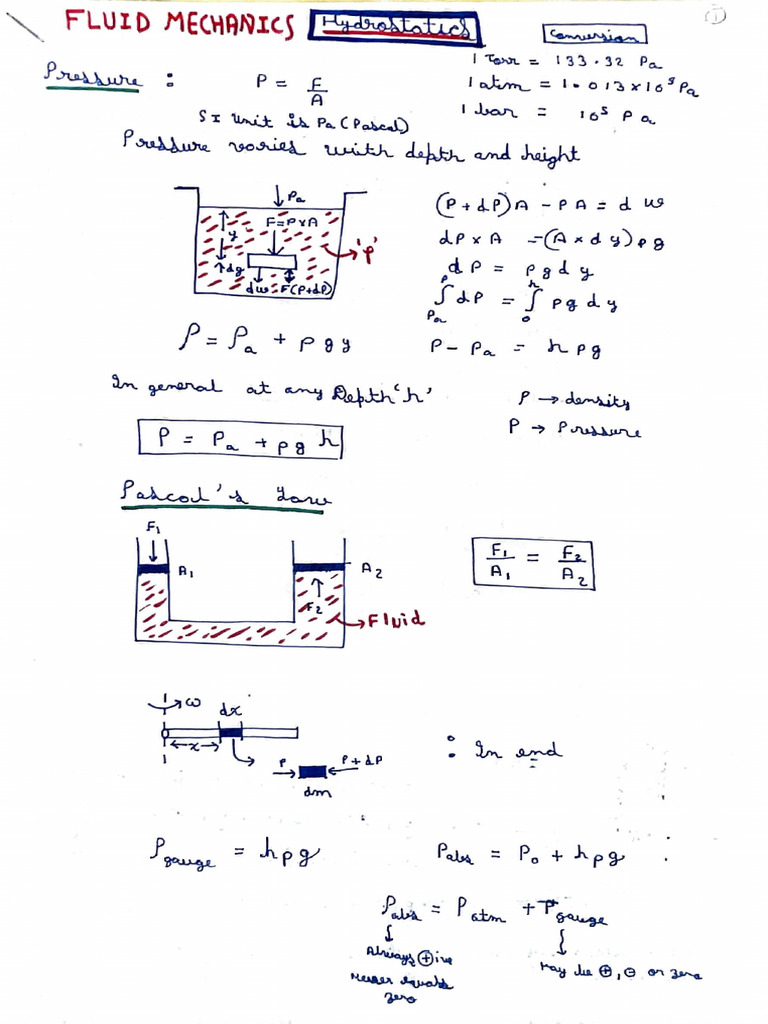 ①
FLUID MECHANICS Hydrostatics
Conversion
1 Torr = 133.32 Pa
1 atm = 1.013x10⁵ Pa
1 bar = 10⁵ Pa
Pressure : P = F/A
SI Unit is Pa (Pascal)
Pressure varies with depth and height
Pa
F=PxA
y
'ρ'
dy
dw F(P+dP)
(P+dP)A - PA = dw
dP x A = (A x dy)ρg
dP = ρgdy
∫_{Pa}^{P} dP = ∫_{0}^{h} ρg dy
P - Pa = hρg
P = Pa + ρgy
In general at any Depth 'h'
P = Pa + ρg h
ρ → density
P → Pressure
Pascal's Law
F₁
A₁ A₂
F₂
Fluid
F₁/A₁ = F₂/A₂
ω
dx
x
P P+dP
dm
: In end
Pgauge = hρg
Pabs = P₀ + hρg
Pabs = Patm + Pgauge
Always ⊕ive
Never equals
zero
may be ⊕, ⊖ or zero